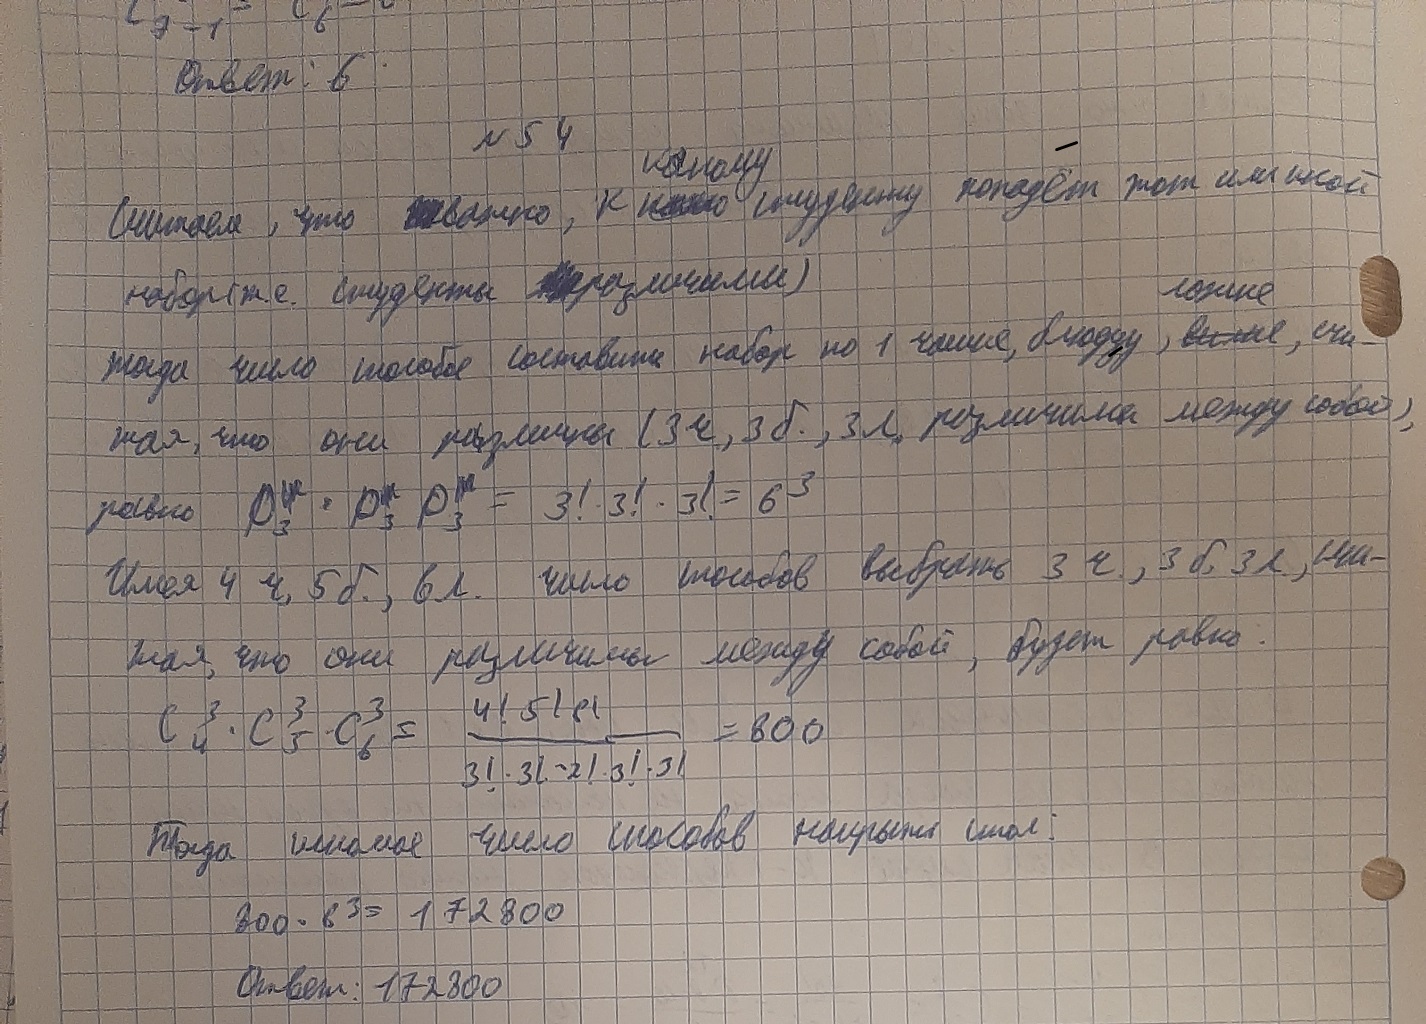 C 7-1 = C 6 = 6
Ответ: 6
№ 54
Считаем, что важно, к какому студенту попадёт тот или иной
набор (т.е. студенты различимы)
Тогда число способов составить набор по 1 чашке, блюдцу, ложке, счи-
тая, что они различны (3 ч., 3 б., 3 л. различимы между собой),
равно P₃ · P₃ P₃ = 3! · 3! · 3! = 6³
Имея 4 ч, 5 б., 6 л. число способов выбрать 3 ч., 3 б, 3 л., счи-
тая, что они различимы между собой, будет равно:
C₄³ · C₅³ · C₆³ = 4! 5! 6! / 3! · 3! · 2! · 3! · 3! = 800
Тогда искомое число способов накрыть стол:
800 · 6³ = 172800
Ответ: 172800